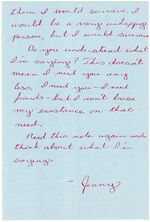 them I would survive. I
would be a very unhappy
person, but I would survive.
Do you understand what
I'm saying? This doesn't
mean I need you any
less. I need you - I need
friends - but I don't base
my existence on that
need.
Read this note again and
think about what I'm
saying.
- Jenny